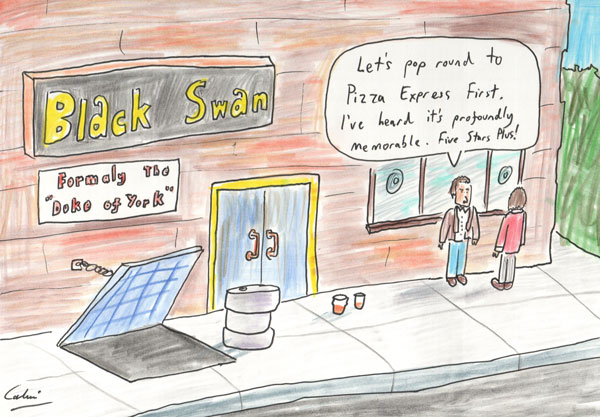 Black Swan
Formaly The
"Doke of York"
Let's pop round to
Pizza Express First.
I've heard it's profoundly
memorable. Five Stars Plus!